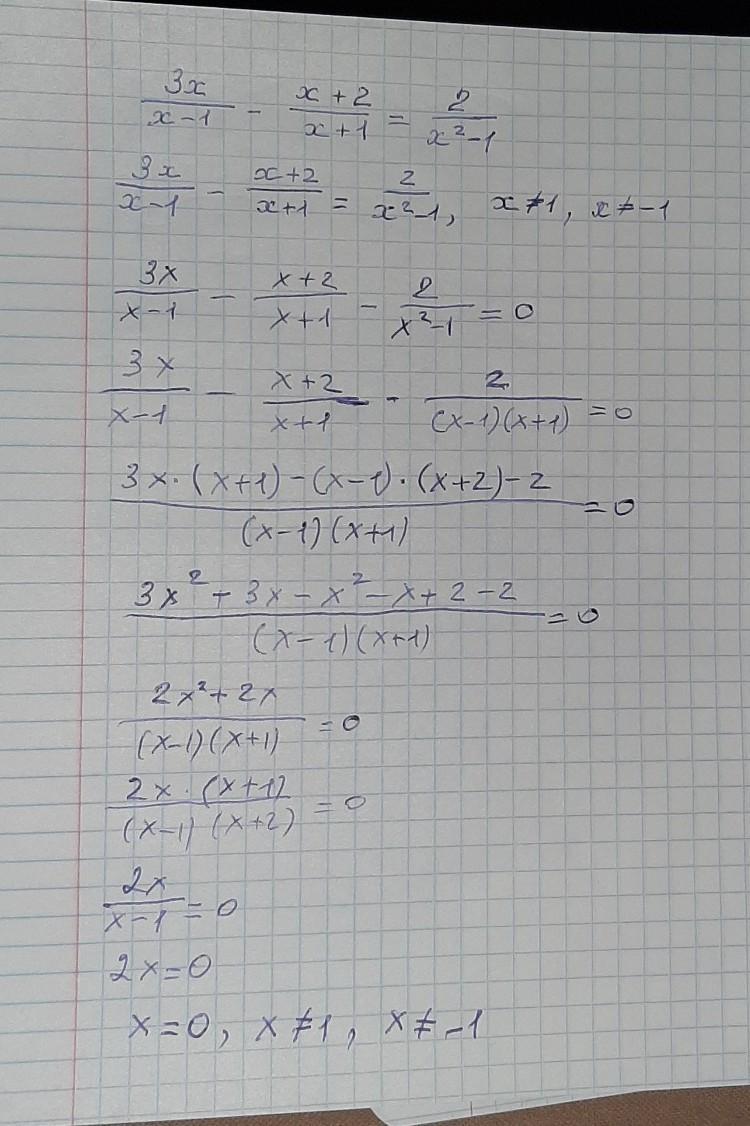 3x/(x-1) - (x+2)/(x+1) = 2/(x²-1)
3x/(x-1) - (x+2)/(x+1) = 2/(x²-1), x≠1, x≠-1
3x/(x-1) - (x+2)/(x+1) - 2/(x²-1) = 0
3x/(x-1) - (x+2)/(x+1) - 2/((x-1)(x+1)) = 0
(3x·(x+1)-(x-1)·(x+2)-2)/((x-1)(x+1)) = 0
(3x²+3x-x²-x+2-2)/((x-1)(x+1)) = 0
(2x²+2x)/((x-1)(x+1)) = 0
(2x·(x+1))/((x-1)(x+2)) = 0
2x/(x-1) = 0
2x=0
x=0, x≠1, x≠-1